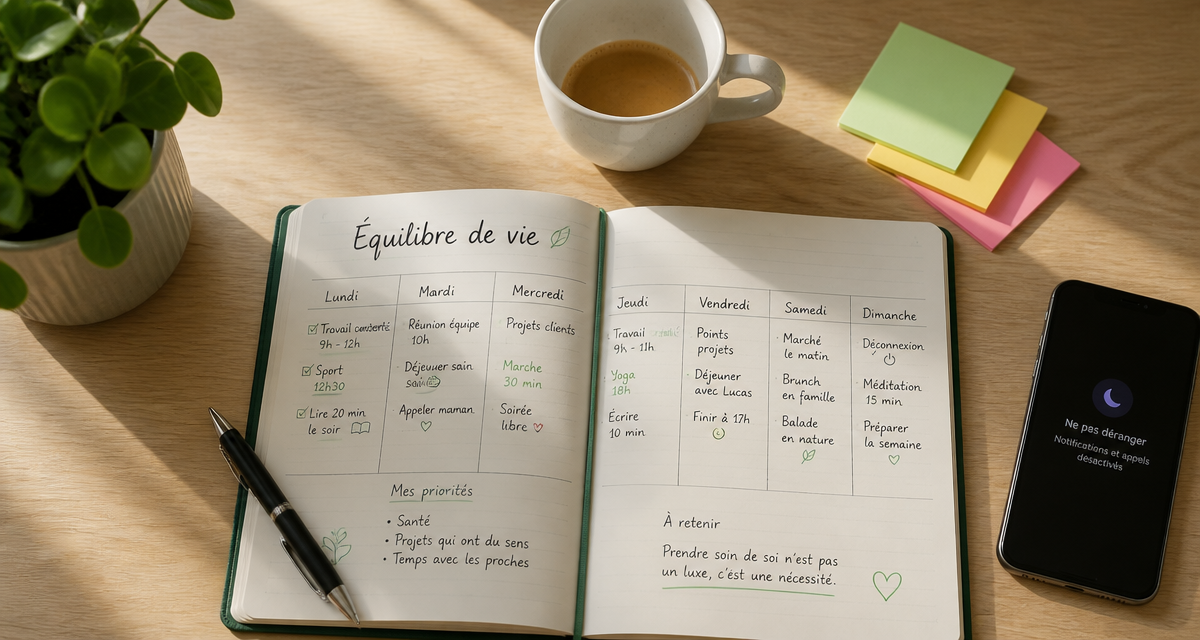 Équilibre de vie
Lundi
Travail
9h - 12h
Sport
12h30
Lire 20 min
le soir
Mardi
Réunion équipe
10h
Déjeuner sain
Appeler maman
Mercredi
Projets clients
Marche
30 min
Soirée
libre
Mes priorités
• Santé
• Projets qui ont du sens
• Temps avec les proches
Jeudi
Travail
9h - 11h
Yoga
18h
Écrire
10 min
Vendredi
Points
projets
Déjeuner
avec Lucas
Finir à 17h
Samedi
Marché
le matin
Brunch
en famille
Balade
en nature
Dimanche
Déconnexion
Méditation
15 min
Préparer
la semaine
À retenir
Prendre soin de soi n'est pas
un luxe, c'est une nécessité.
Ne pas déranger
Notifications et appels
désactivés